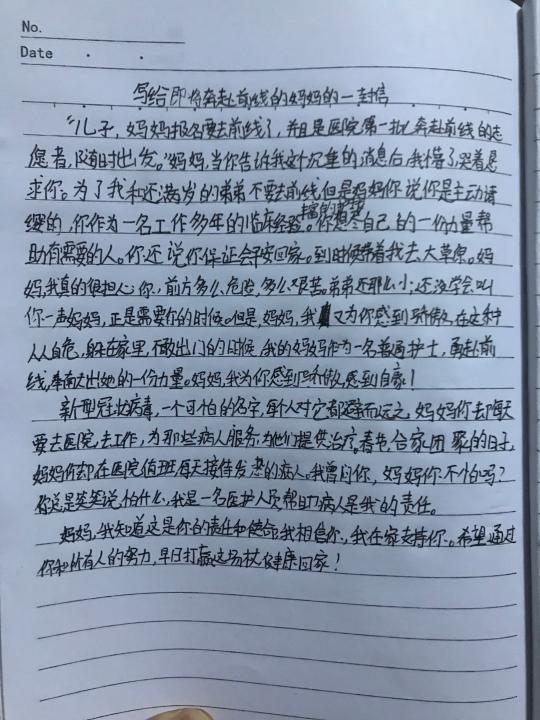 No.
Date
写给即将奔赴前线的妈妈的一封信
“儿子，妈妈报名要去前线了，并且是医院第一批奔赴前线的志
愿者，随时出发。”妈妈，当你告诉我这个沉重的消息后，我懵了，哭着恳
求你。为了我和还没满岁的弟弟不要去前线，但是妈妈你说你是主动请
缨的，你作为一名工作多年的临床经验丰富的护士，你想尽自己的一份力量帮
助有需要的人。你还说你保证会平安回家。到时候带着我去大草原。妈
妈，我真的很担心你，前方多么危险，多么艰苦，弟弟还那么小，还没学会叫
你一声妈妈，正是需要你的时候。但是，妈妈，我又为你感到骄傲，在这种
人人自危，躲在家里，不敢出门的时候，我的妈妈作为一名普通护士，勇赴前
线，奉献出她的一份力量。妈妈，我为你感到骄傲，感到自豪！
新型冠状病毒，一个可怕的名字，每个人对它都避而远之，妈妈你却每天
要去医院，去工作，为那些病人服务，为他们提供治疗。春节，合家团聚的日子，
妈妈你却在医院值班每天接待发热的病人。我曾问你，妈妈你不怕吗？
你总是笑笑说，怕什么，我是一名医护人员帮助病人是我的责任。
妈妈，我知道这是你的责任和使命，我相信你，我在家支持你。希望通过
你和所有人的努力，早日打赢这场仗，健康回家！